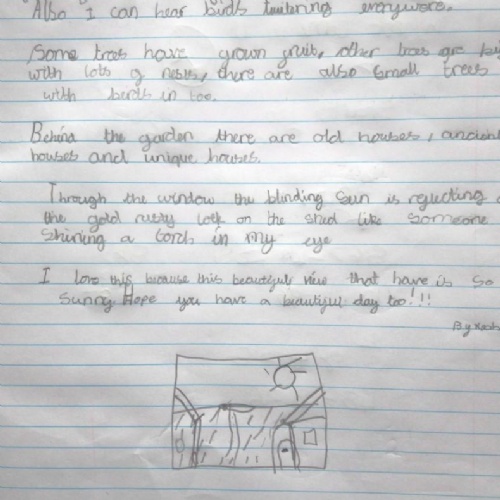 Also I can hear birds twittering everywere.
Some trees have grown fruit, other trees are
with lots of nests, there are also small trees
with birds in too.
Behind the garden there are old houses, ancient
houses and unique houses.
Through the window the blinding sun is reflecting
the gold rusty lock on the shed like someone
shining a torch in my eye
I love this because this beautiful view that have is so
sunny Hope you have a beautiful day too!!!
By